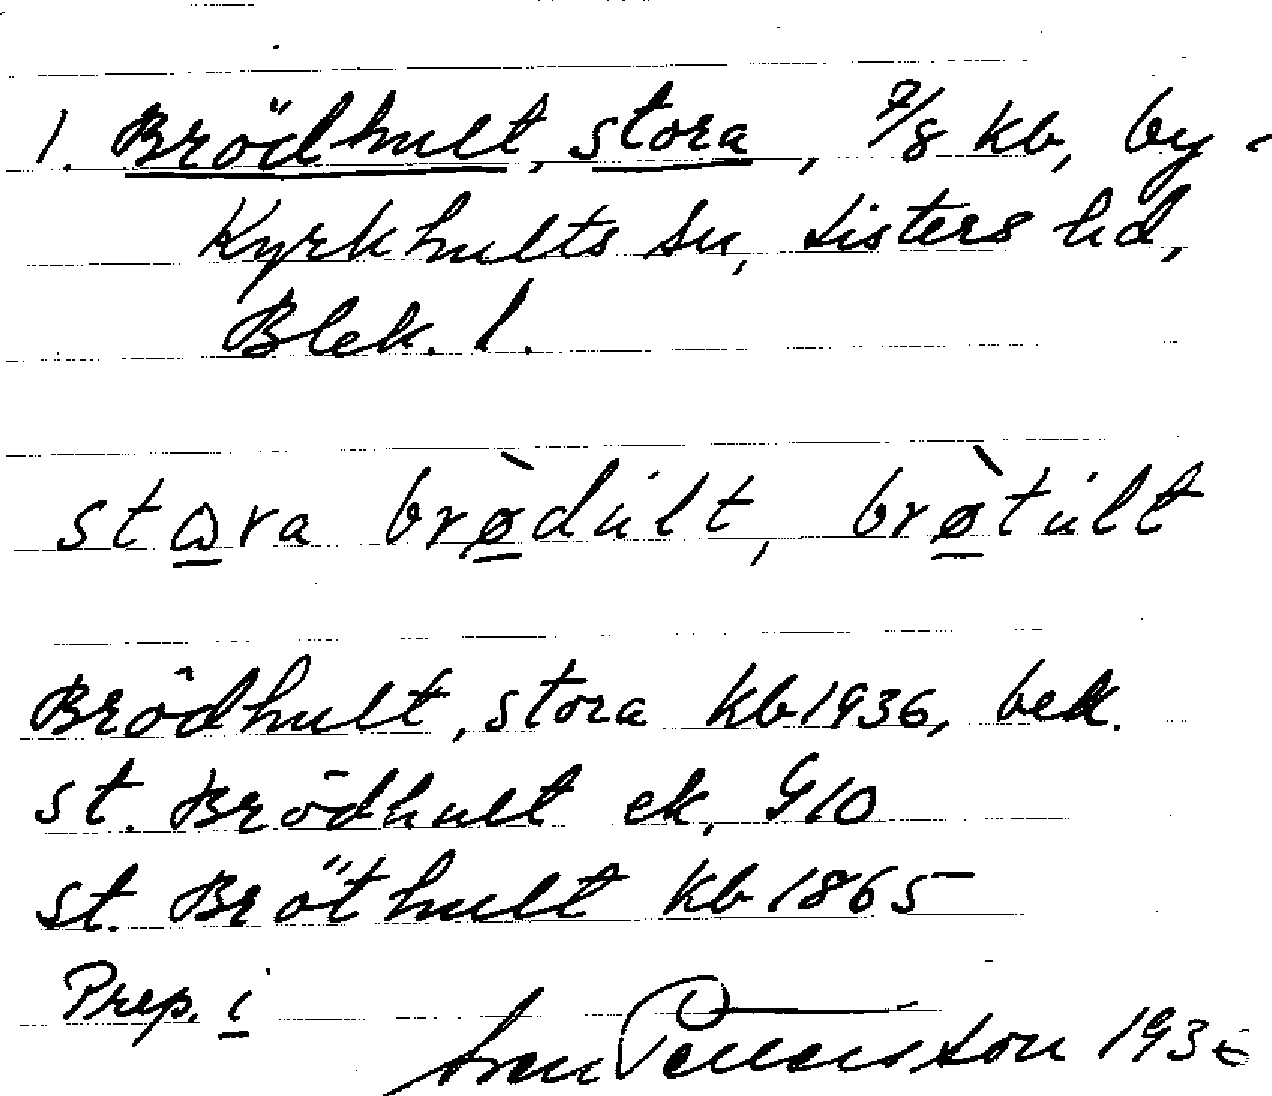 1. Brödhult, stora, 7/8 kb, by -
Kyrkhults sn, Listers hd,
Blek. l.
stωra brø̀dult, brø̀tult
Brödhult, stora kb 1936, bek.
st. Brödhult ek, G10
st. Bröthult kb 1865
Prep. i
Sven Pettersson 1936